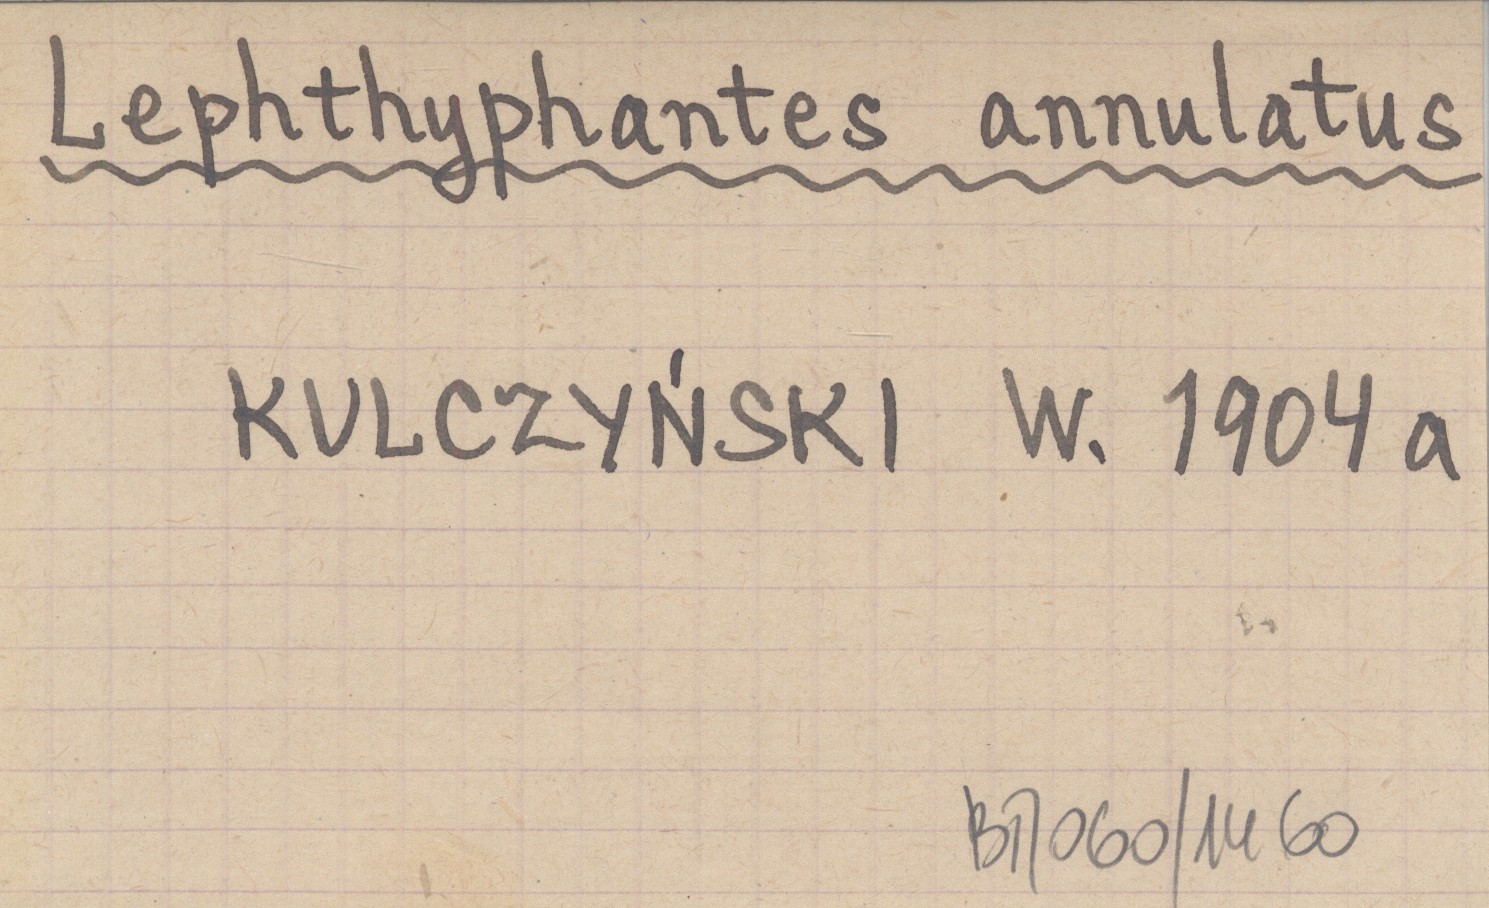 Lephthyphantes annulatus
KULCZYŃSKI W. 1904a